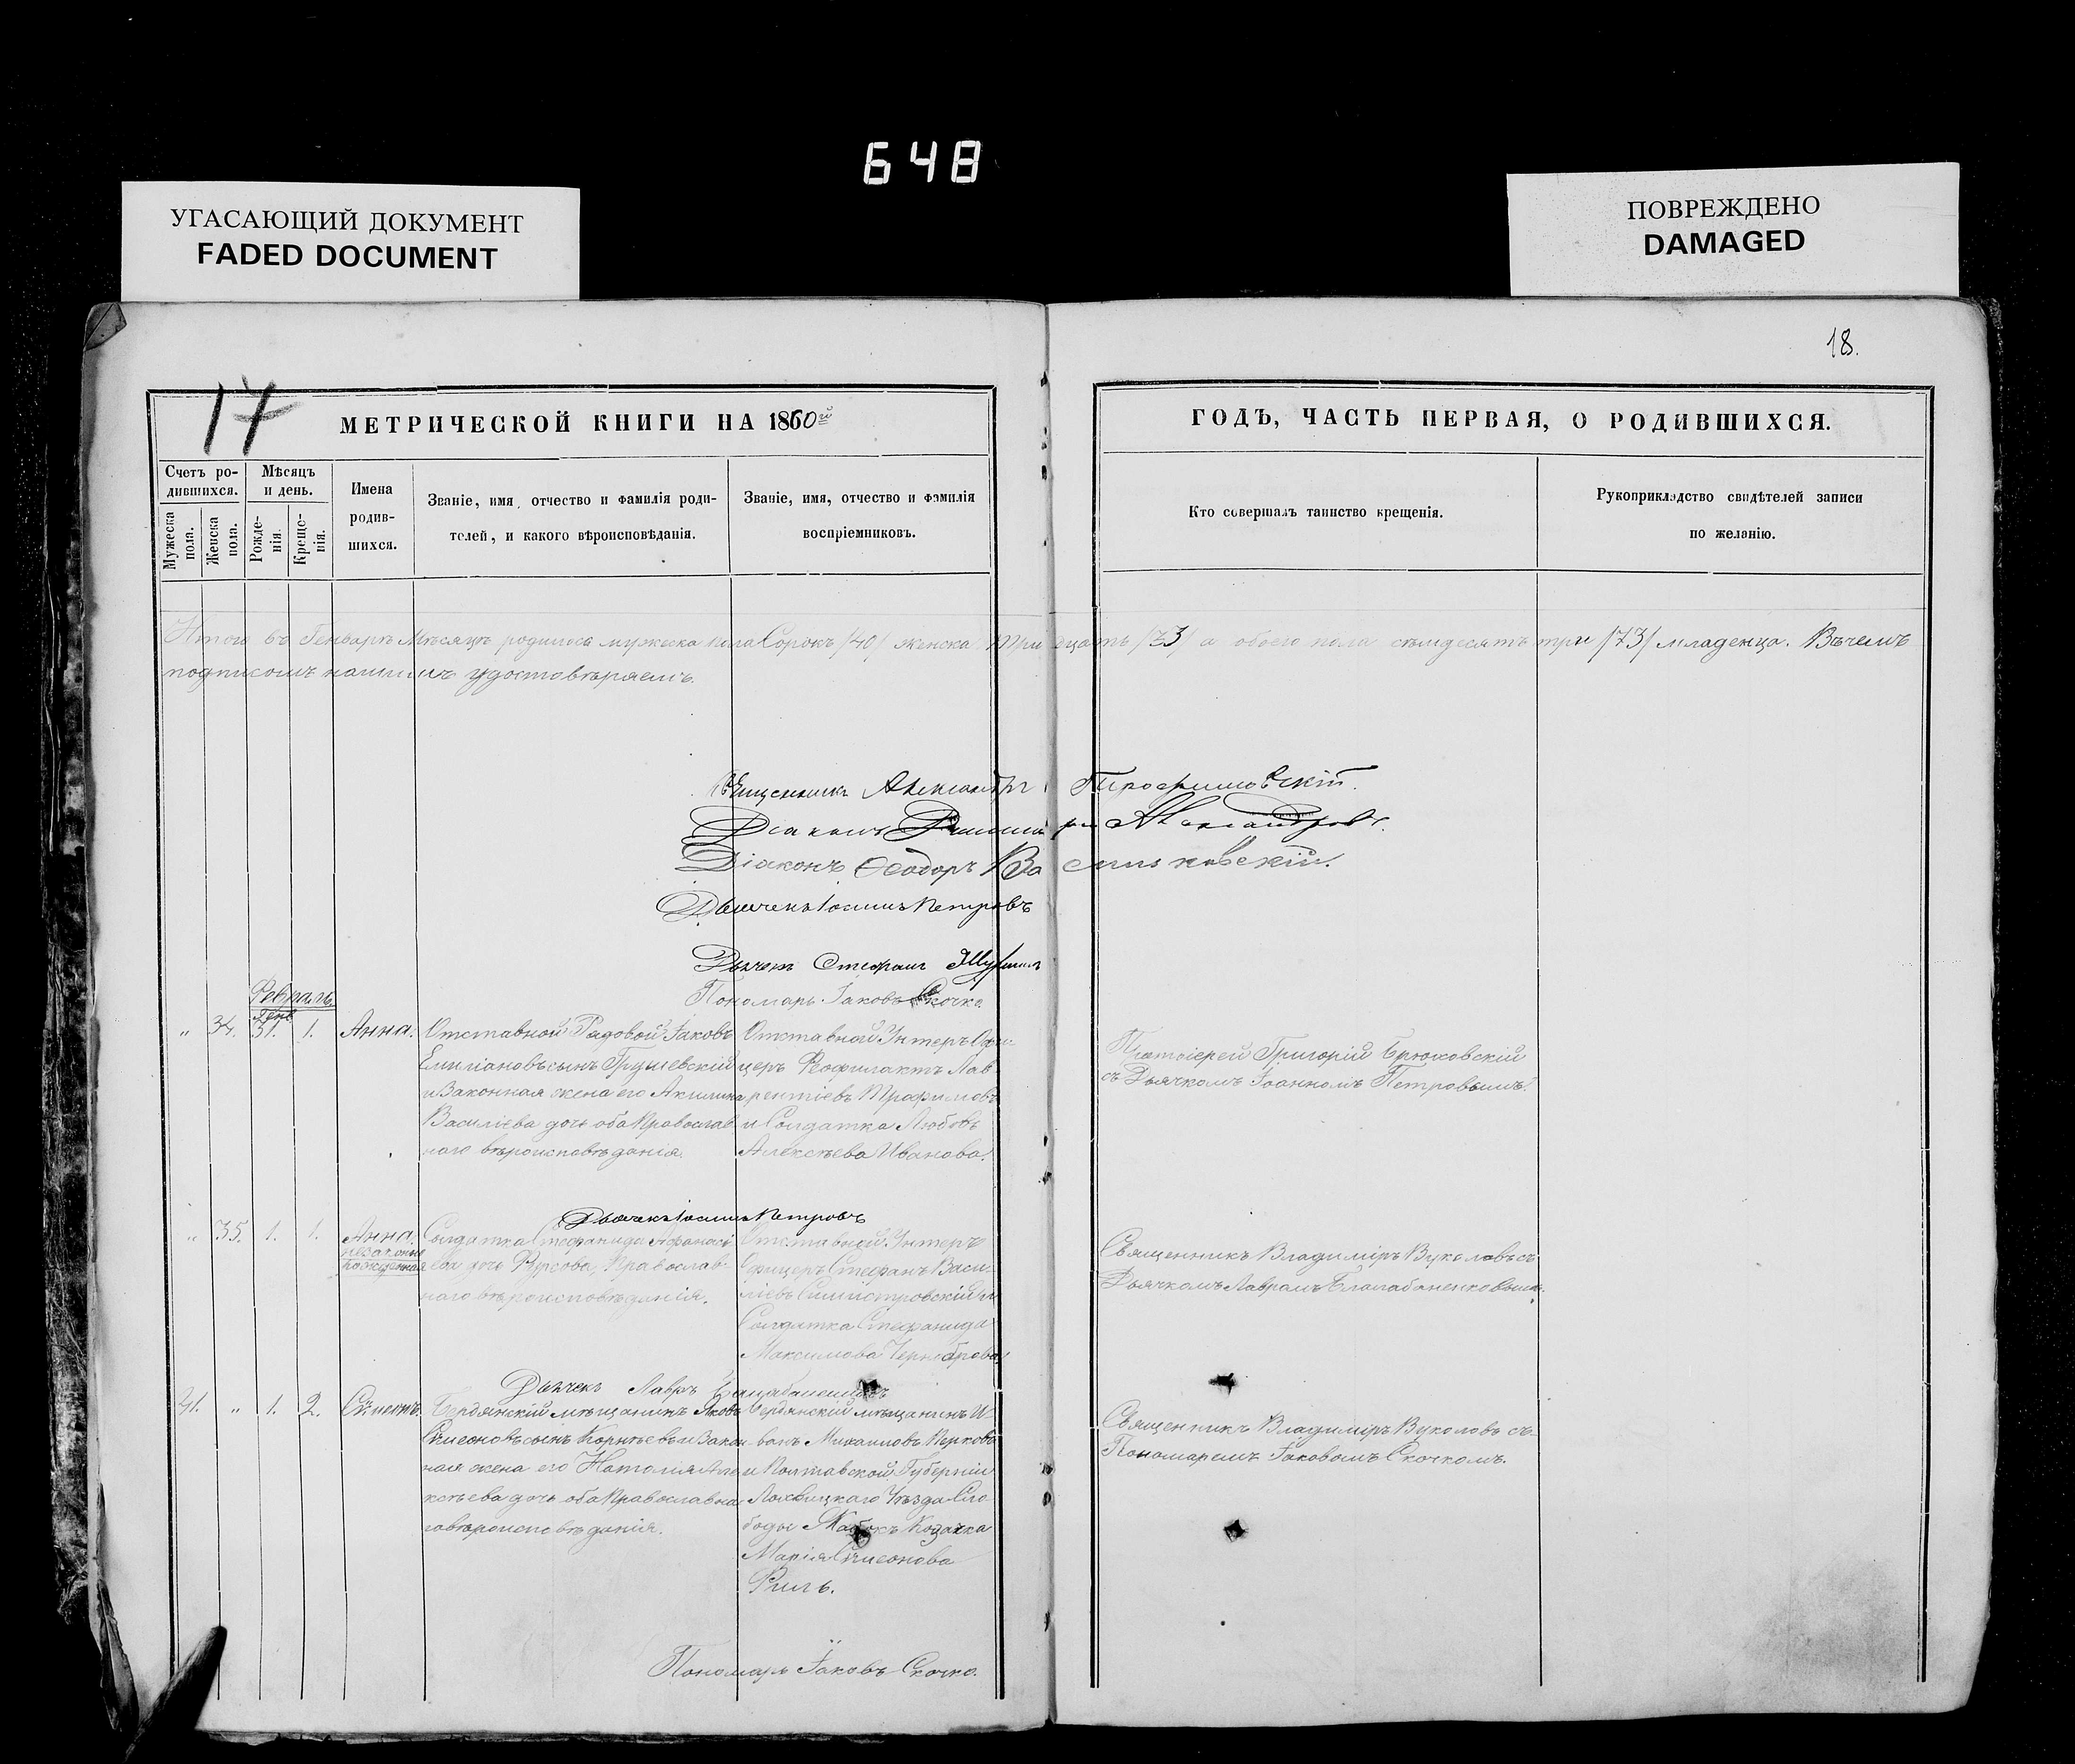 648
УГАСАЮЩИЙ ДОКУМЕНТ
FADED DOCUMENT
ПОВРЕЖДЕНО
DAMAGED
18.
17
МЕТРИЧЕСКОЙ КНИГИ НА 1860й
ГОДЪ, ЧАСТЬ ПЕРВАЯ, О РОДИВШИХСЯ.
Счетъ ро-
дившихся.
Мужеска
пола.
Женска
пола.
Мѣсяцъ
и день.
Рожде-
нія.
Креще-
нія.
Имена
родив-
шихся.
Званіе, имя, отчество и фамилія роди-
телей, и какого вѣроисповѣданія.
Званіе, имя, отчество и фамилія
воспріемниковъ.
Кто совершалъ таинство крещенія.
Рукоприкладство свидѣтелей записи
по желанію.
Итого въ Генварѣ Мѣсяцѣ родилось мужеска пола Сорокъ /40/ женска тридцать /33/ а обоего пола семдесятъ три /73/ младенца. Въ чемъ
подписомъ нашимъ удостовѣряемъ.
Священникъ Александръ Трофимовскій.
Діаконъ Александровъ.
Діаконъ Ѳеодоръ Васильковскій.
Дьячекъ Іоаннъ Петровъ
Дьячекъ Стефанъ
Пономарь Іаковъ Скочко.
Февраль
Генв
„ 34. 31. 1. Анна.
Отставной Рядовой Іаковъ
Емиліановъ сынъ Грушевскій
и Законная жена его Акилина
Василіева дочь оба Православ
наго вѣроисповѣданія.
Отставной Унтеръ Офи-
церъ Феофилактъ Лав
рентіевъ Трофимовъ
и Солдатка Любовь
Алексѣева Иванова.
Протоіерей Григорій Брюховскій
съ Дьячкомъ Іоанномъ Петровымъ.
Дьячекъ Іоаннъ Петровъ
„ 35. 1. 1. Анна
незаконно
рожденная
Солдатка Стефанида Афанасі
ева дочь Фурсова, Православ-
наго вѣроисповѣданія.
Отставной Унтеръ
Офицеръ Стефанъ Васи-
ліевъ Силистровскій и
Солдатка Стефанида
Максимова Чернобрева.
Священникъ Владиміръ Вуколовъ съ
Дьячкомъ Лавромъ Балабаненковымъ.
Дьячекъ Лавръ
41. „ 1. 2. Сѵмеонъ.
Бердянскій мѣщанинъ Яковъ
Сѵмеоновъ сынъ Корнѣевъ и Закон
ная жена его Наталія Але
ксѣева дочь оба Православна
го вѣроисповѣданія.
Бердянскій мѣщанинъ И-
ванъ Михаиловъ Перковъ
и Полтавской Губерніи
Лохвицкаго Уѣзда Сло
боды Козачка
Марія Сѵмеонова
Священникъ Владиміръ Вуколовъ съ
Пономаремъ Іаковомъ Скочкомъ.
Пономарь Іаковъ Скочко.